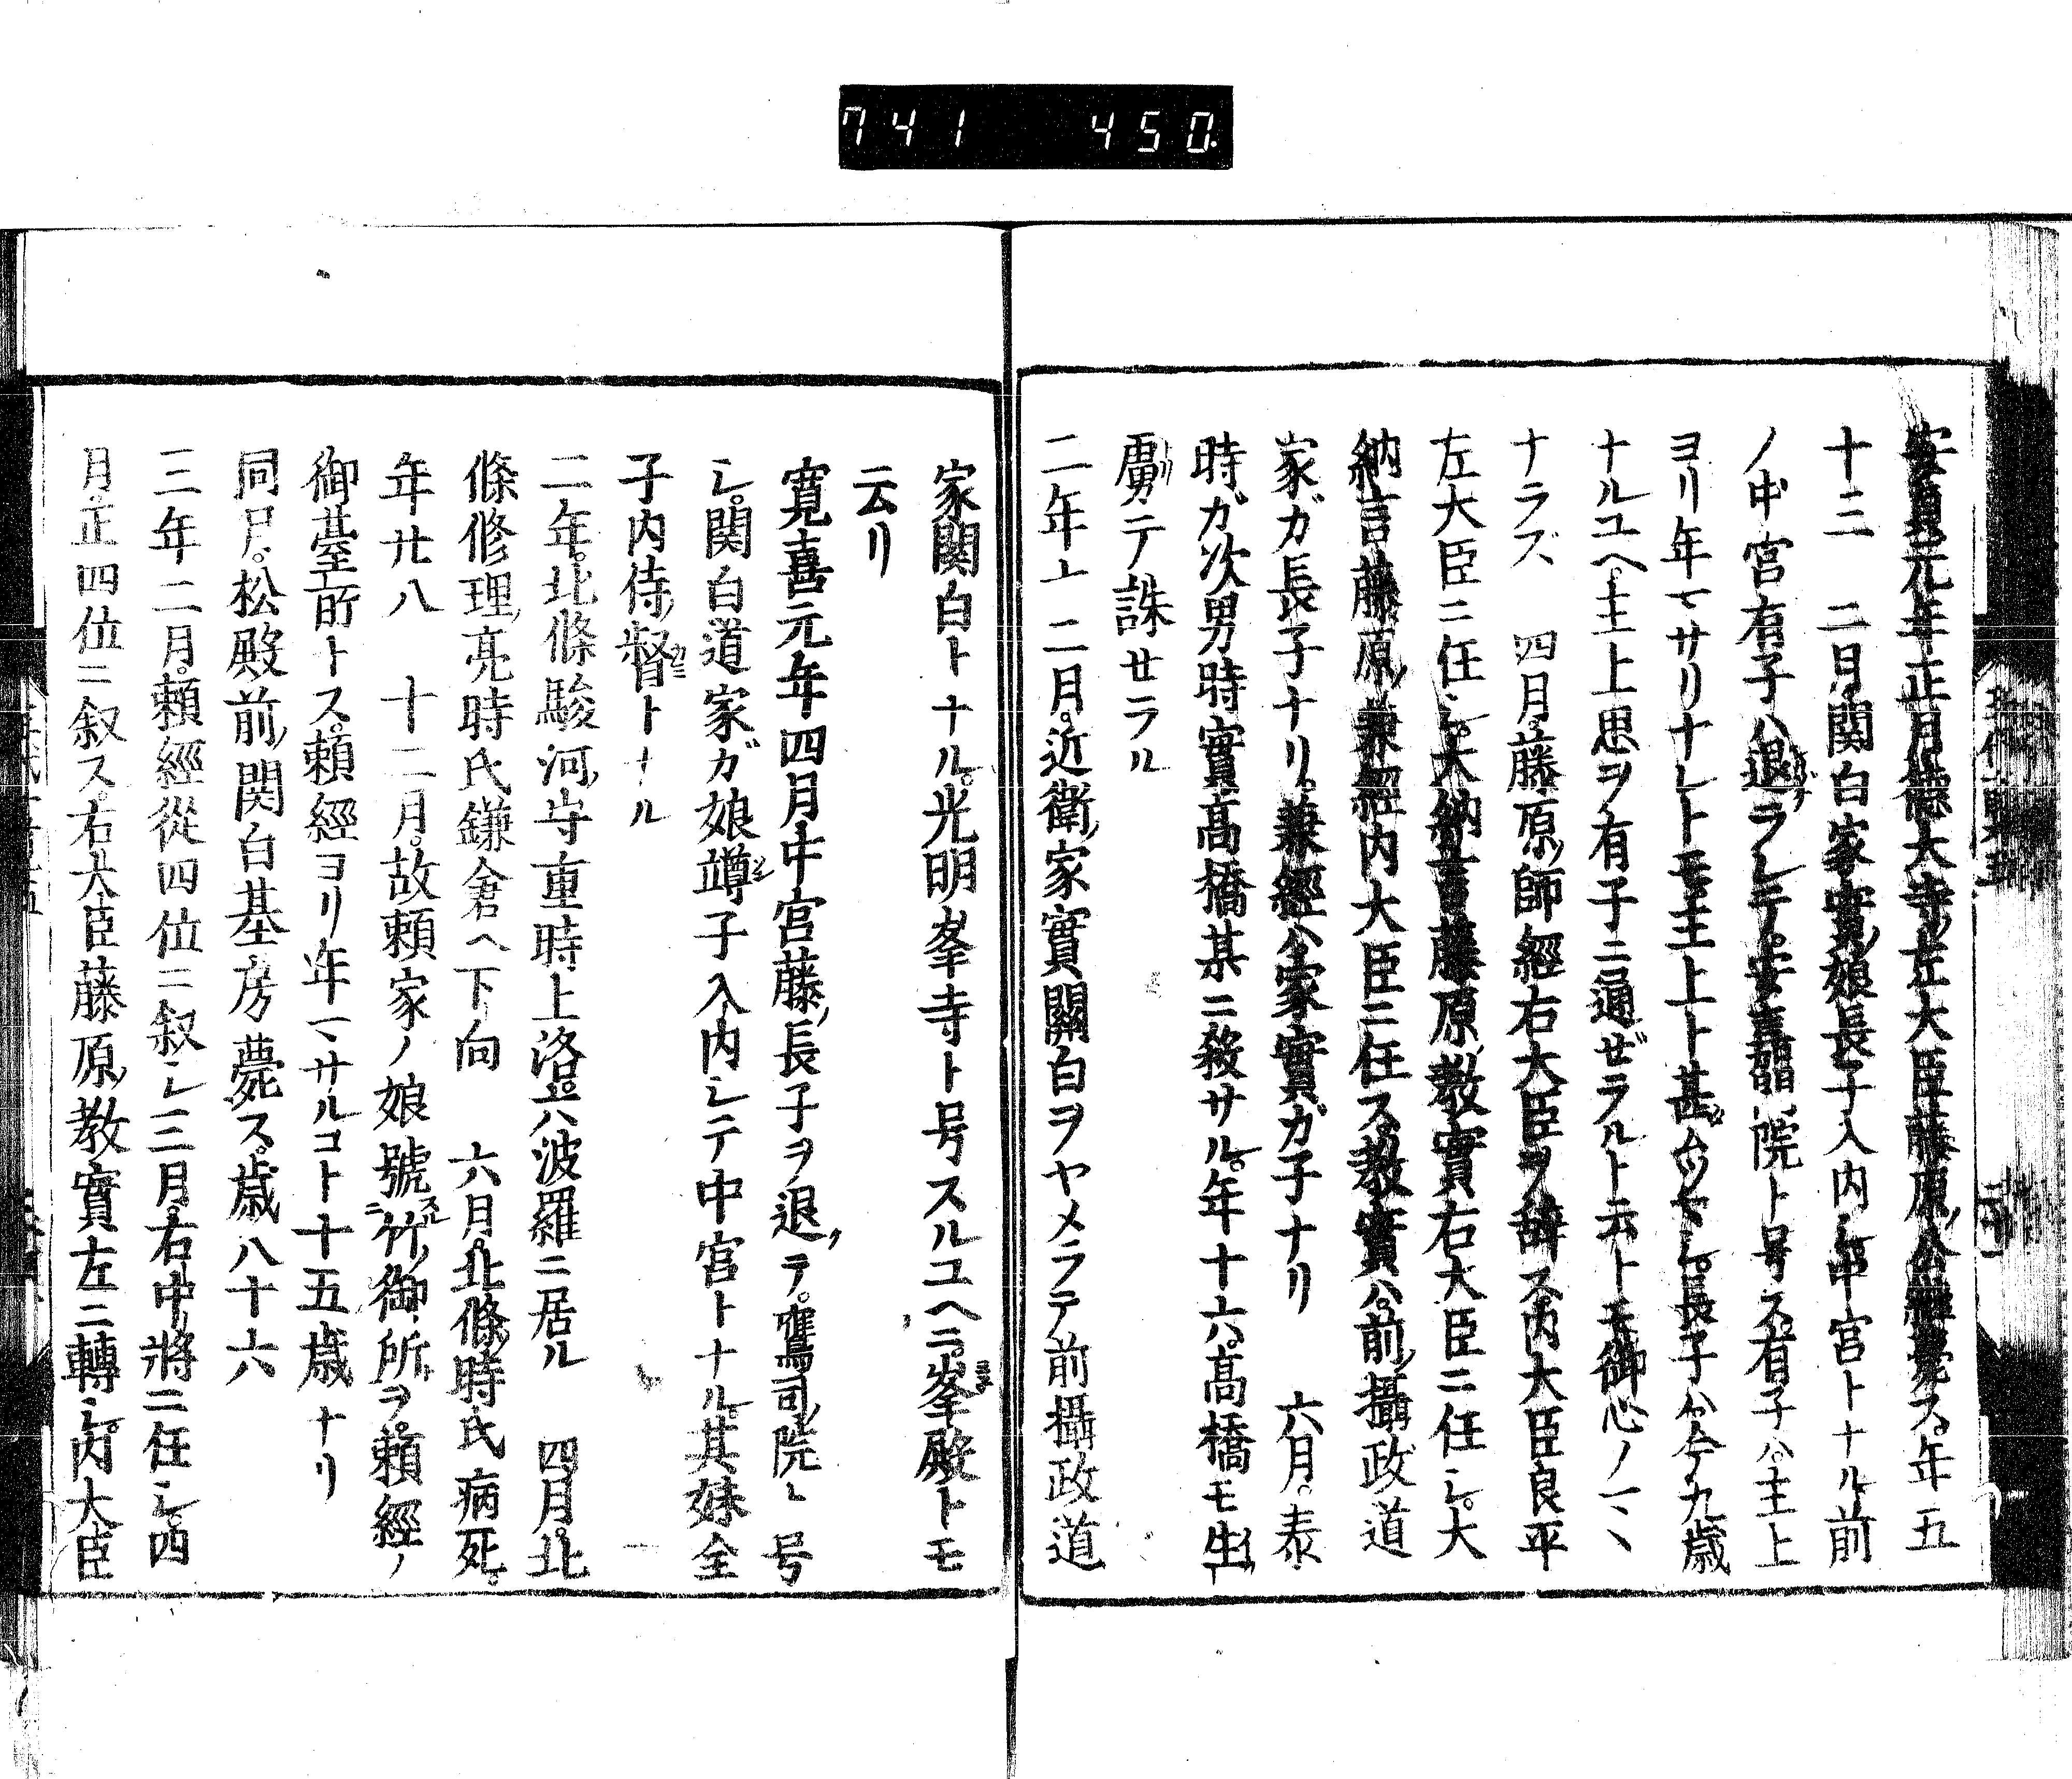 741 450
安貞元年正月德大寺左大臣藤原公繼薨ス年五
十三 二月関白家實娘長子入内シ中宮トナル前
ノ中宮有子ハ退ラレテ安嘉院ト号ス有子ハ主上
ヨリ年マサリナレトモ主上ト甚ムツマシ長子ハ今九歳
ナルユヘ主上思ヲ有子ニ通ぜラルト云トモ御心ノマヽ
ナラズ 四月藤原師經右大臣ヲ辞ス内大臣良平
左大臣ニ任シ大納言藤原教實右大臣ニ任シ大
納言藤原兼經内大臣ニ任ス教實ハ前攝政道
家ガ長子ナリ兼經ハ家實ガ子ナリ 六月泰
時ガ次男時實髙橋某ニ殺サル年十六髙橋モ生
虜テ誅セラル
二年十二月近衛家實關白ヲヤメラテ前攝政道
家関白トナル光明峯寺ト号スルユヘニ峯殿トモ
云リ
寛喜元年四月中宮藤長子ヲ退テ鷹司院ト号
シ関白道家ガ娘竴子入内シテ中宮トナル其妹全
子内侍督トナル
二年北條駿河守重時上洛六波羅ニ居ル 四月北
條修理亮時氏鎌倉ヘ下向 六月北條時氏病死
年廿八 十二月故頼家ノ娘號竹御所ヲ頼經ノ
御䑓所トス頼經ヨリ年マサルコト十五歳ナリ
同月松殿前関白基房薨ス歳八十六
三年二月頼經從四位ニ叙シ三月右中將ニ任シ四
月正四位ニ叙ス右大臣藤原教實左ニ轉シ内大臣